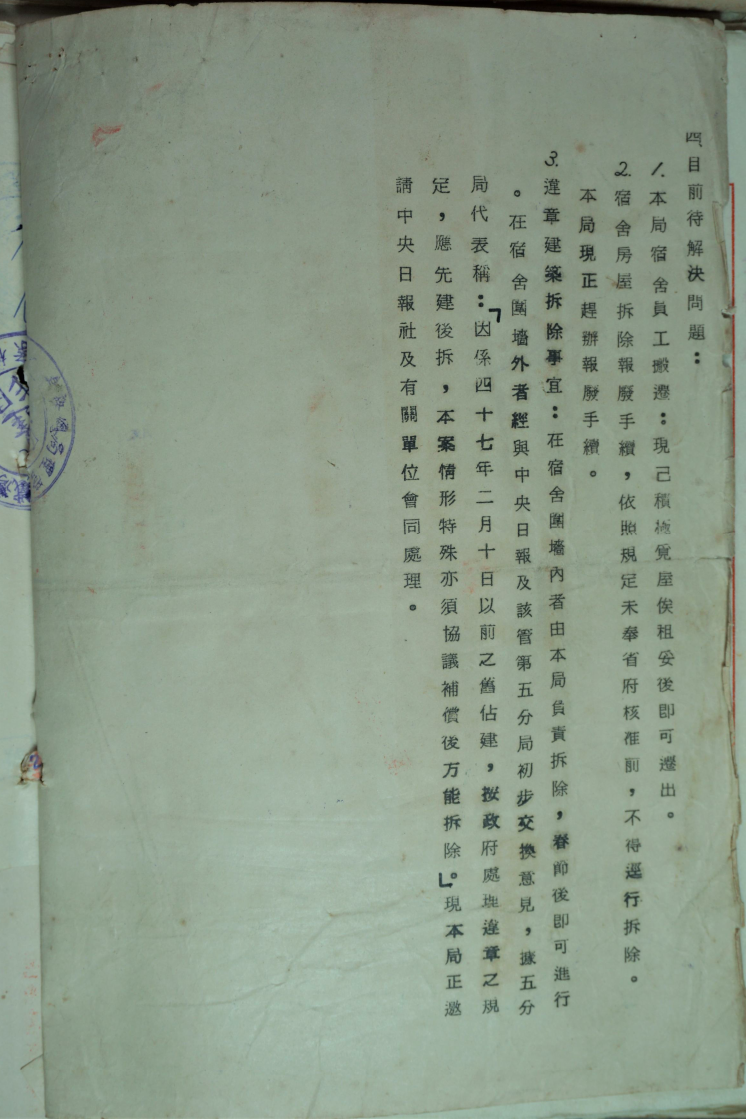 四目前待解決問題：
1.本局宿舍員工搬遷：現己積極覓屋俟租妥後即可遷出。
2.宿舍房屋拆除報廢手續，依照規定未奉省府核准前，不得逕行拆除。
本局現正趕辦報廢手續。
3.違章建築拆除事宜：在宿舍圍墻內者由本局負責拆除，春節後即可進行
。在宿舍圍墻外者經與中央日報及該管第五分局初步交換意見，據五分
局代表稱：「因係四十七年二月十日以前之舊佔建，按政府處理違章之規
定，應先建後拆，本案情形特殊亦須協議補償後方能拆除」。現本局正邀
請中央日報社及有關單位會同處理。